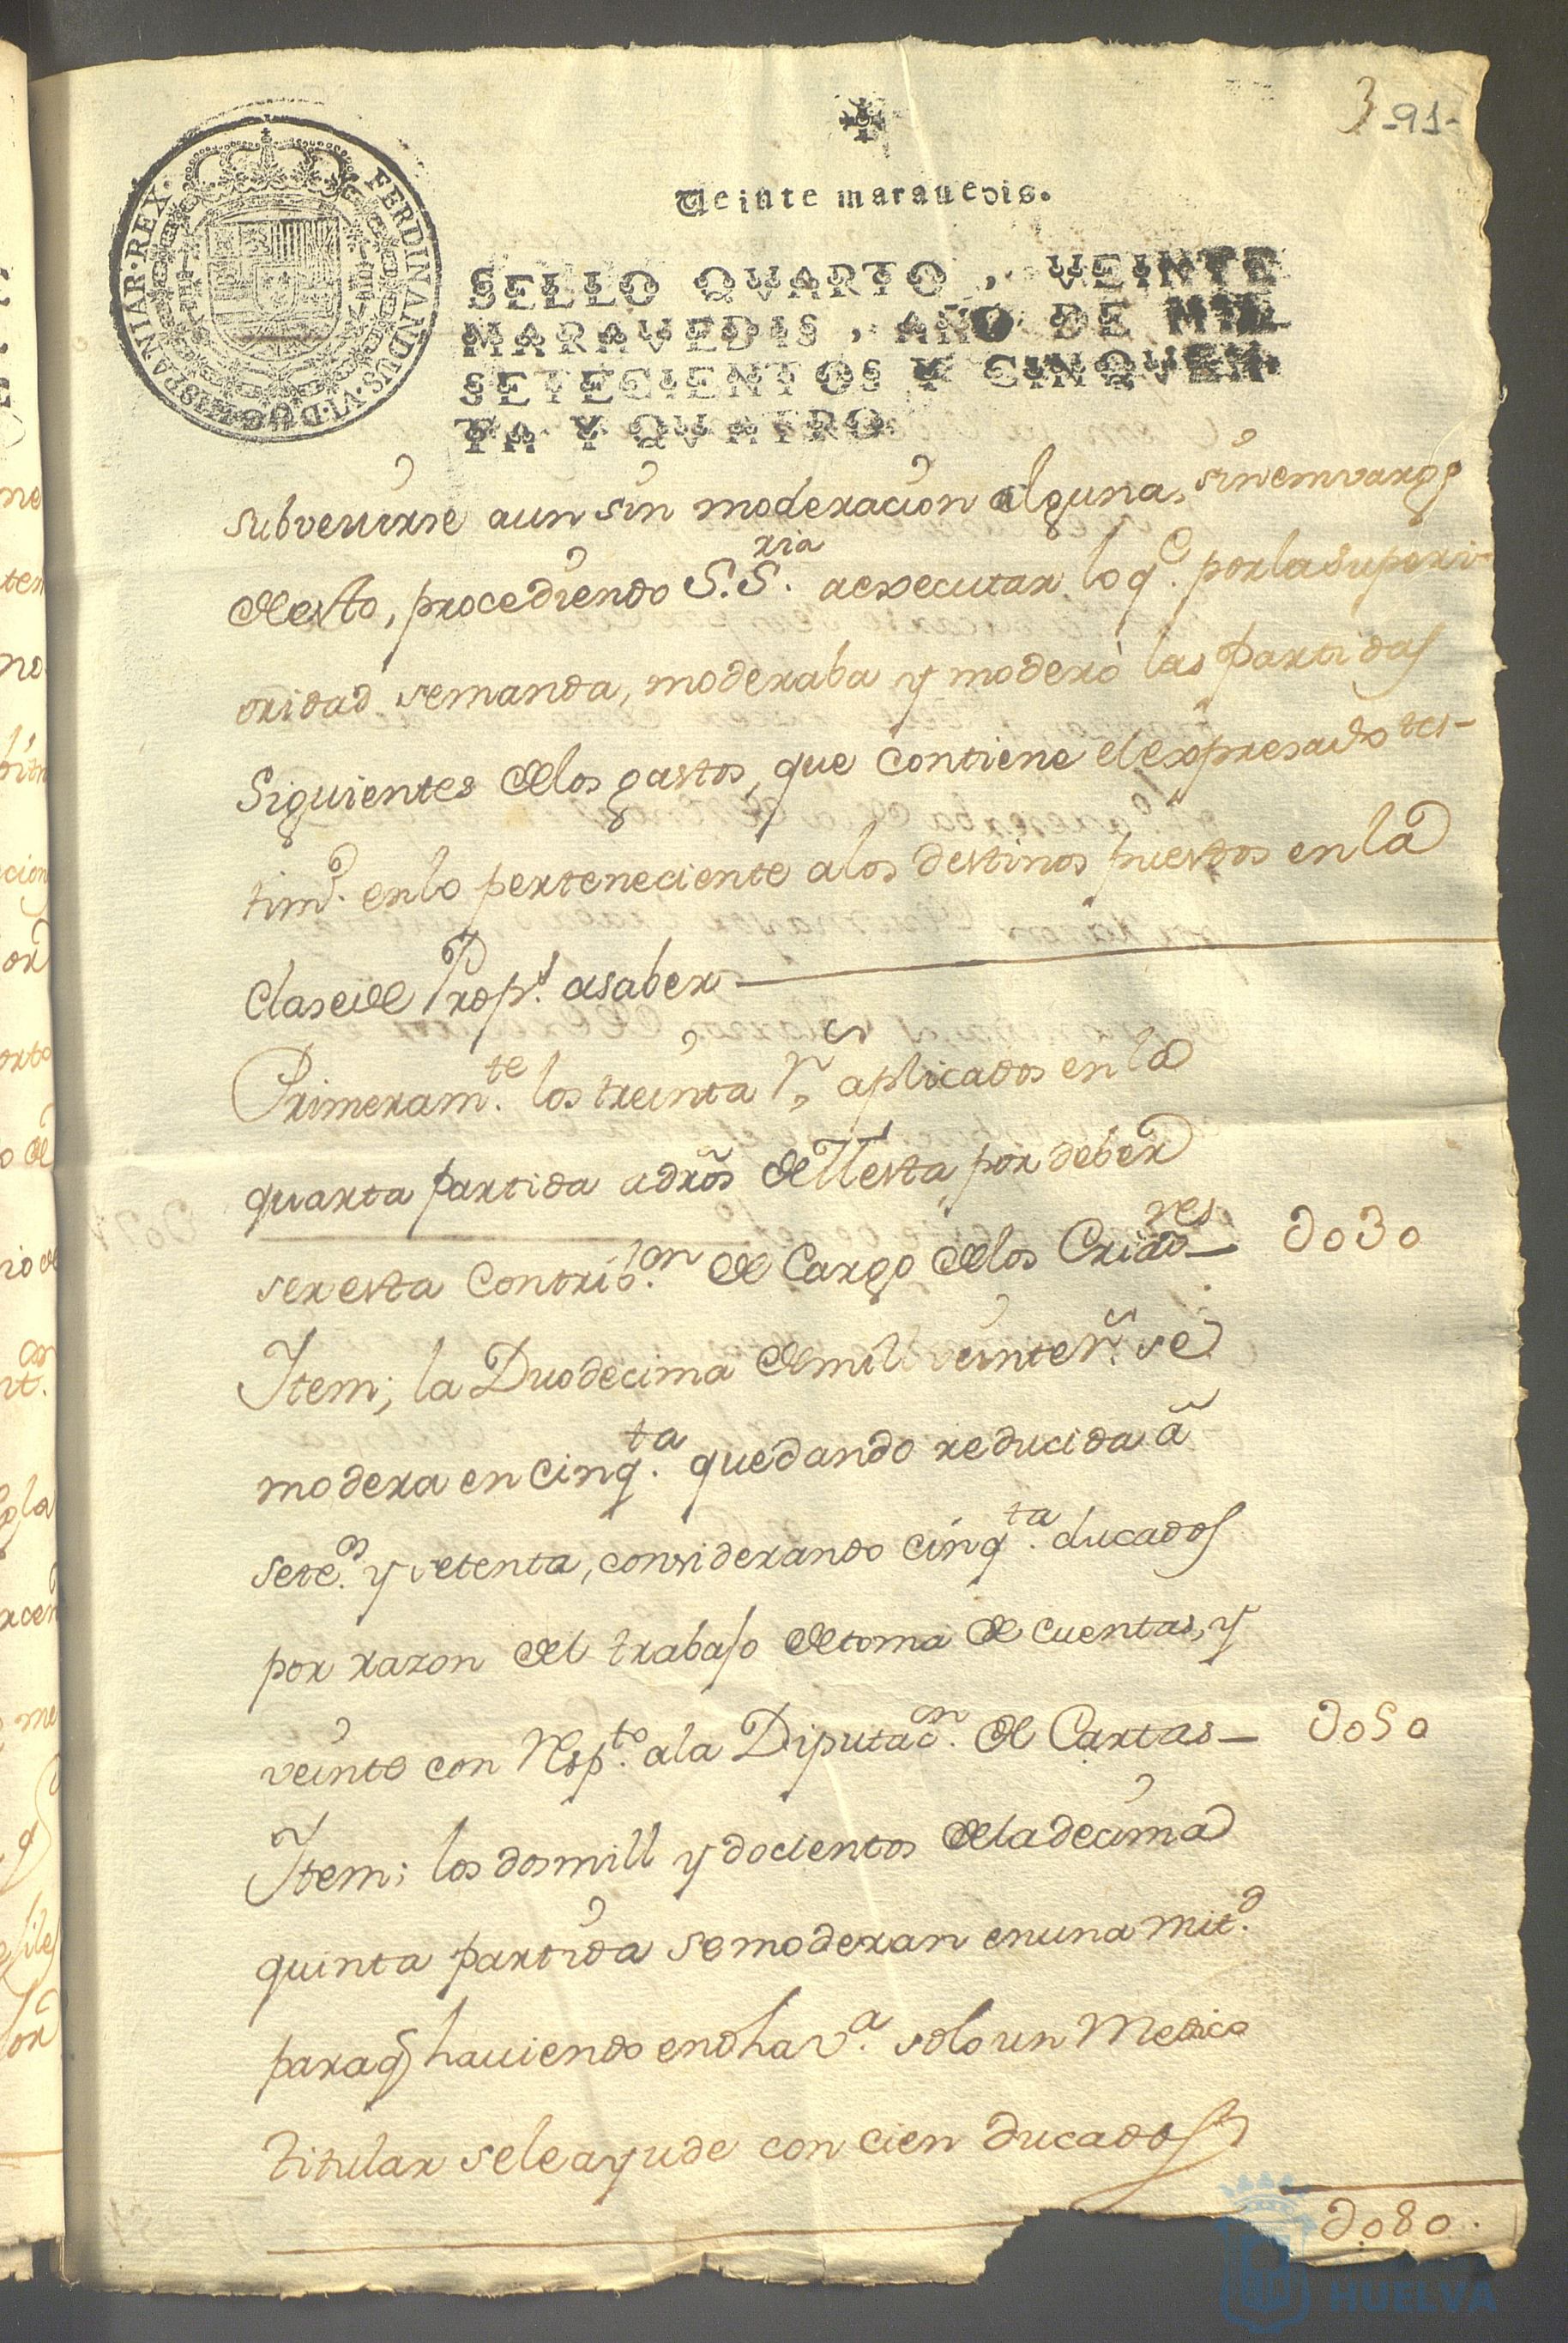 3 -91-
Veinte marauedis.
HISPANIAR·REX· FERDINANDUS·VI·D·G·
SELLO QVARTO, VEINTE
MARAVEDIS, AÑO DE MIL
SETECIENTOS Y CINQVEN
TA Y QVATRO
subvenirse aun sin moderacion alguna, sinemvargo
de esto, procediendo S. S.ria aexecutar lo q.e por la superi-
oridad semanda, moderaba y moderò las partidas
Siguientes de los gastos, que contiene el expresado tes-
tim.o en lo perteneciente a los destinos puestos en la
Clase de Prop.s asaber
Primeram.te los treinta r.s aplicados en la
quarta partida a dros de Mesta por deber
ser esta Contrib.on de Cargo de los Criado.res — d030
Item; la Duodecima de mill veinte r.s se
modera en cinq.ta quedando reducida à
sete.s y setenta, considerando cinq.ta ducados
por razon del trabajo de toma de cuentas, y
veinte con Resp.to a la Diputac.on de Cartas — d050
Item; los dosmill y docientos de la decima
quinta partida se moderan en una mit.d
para q haviendo en dha v.a solo un Medico
titular se le ayude con cien ducados
d080.
HUELVA